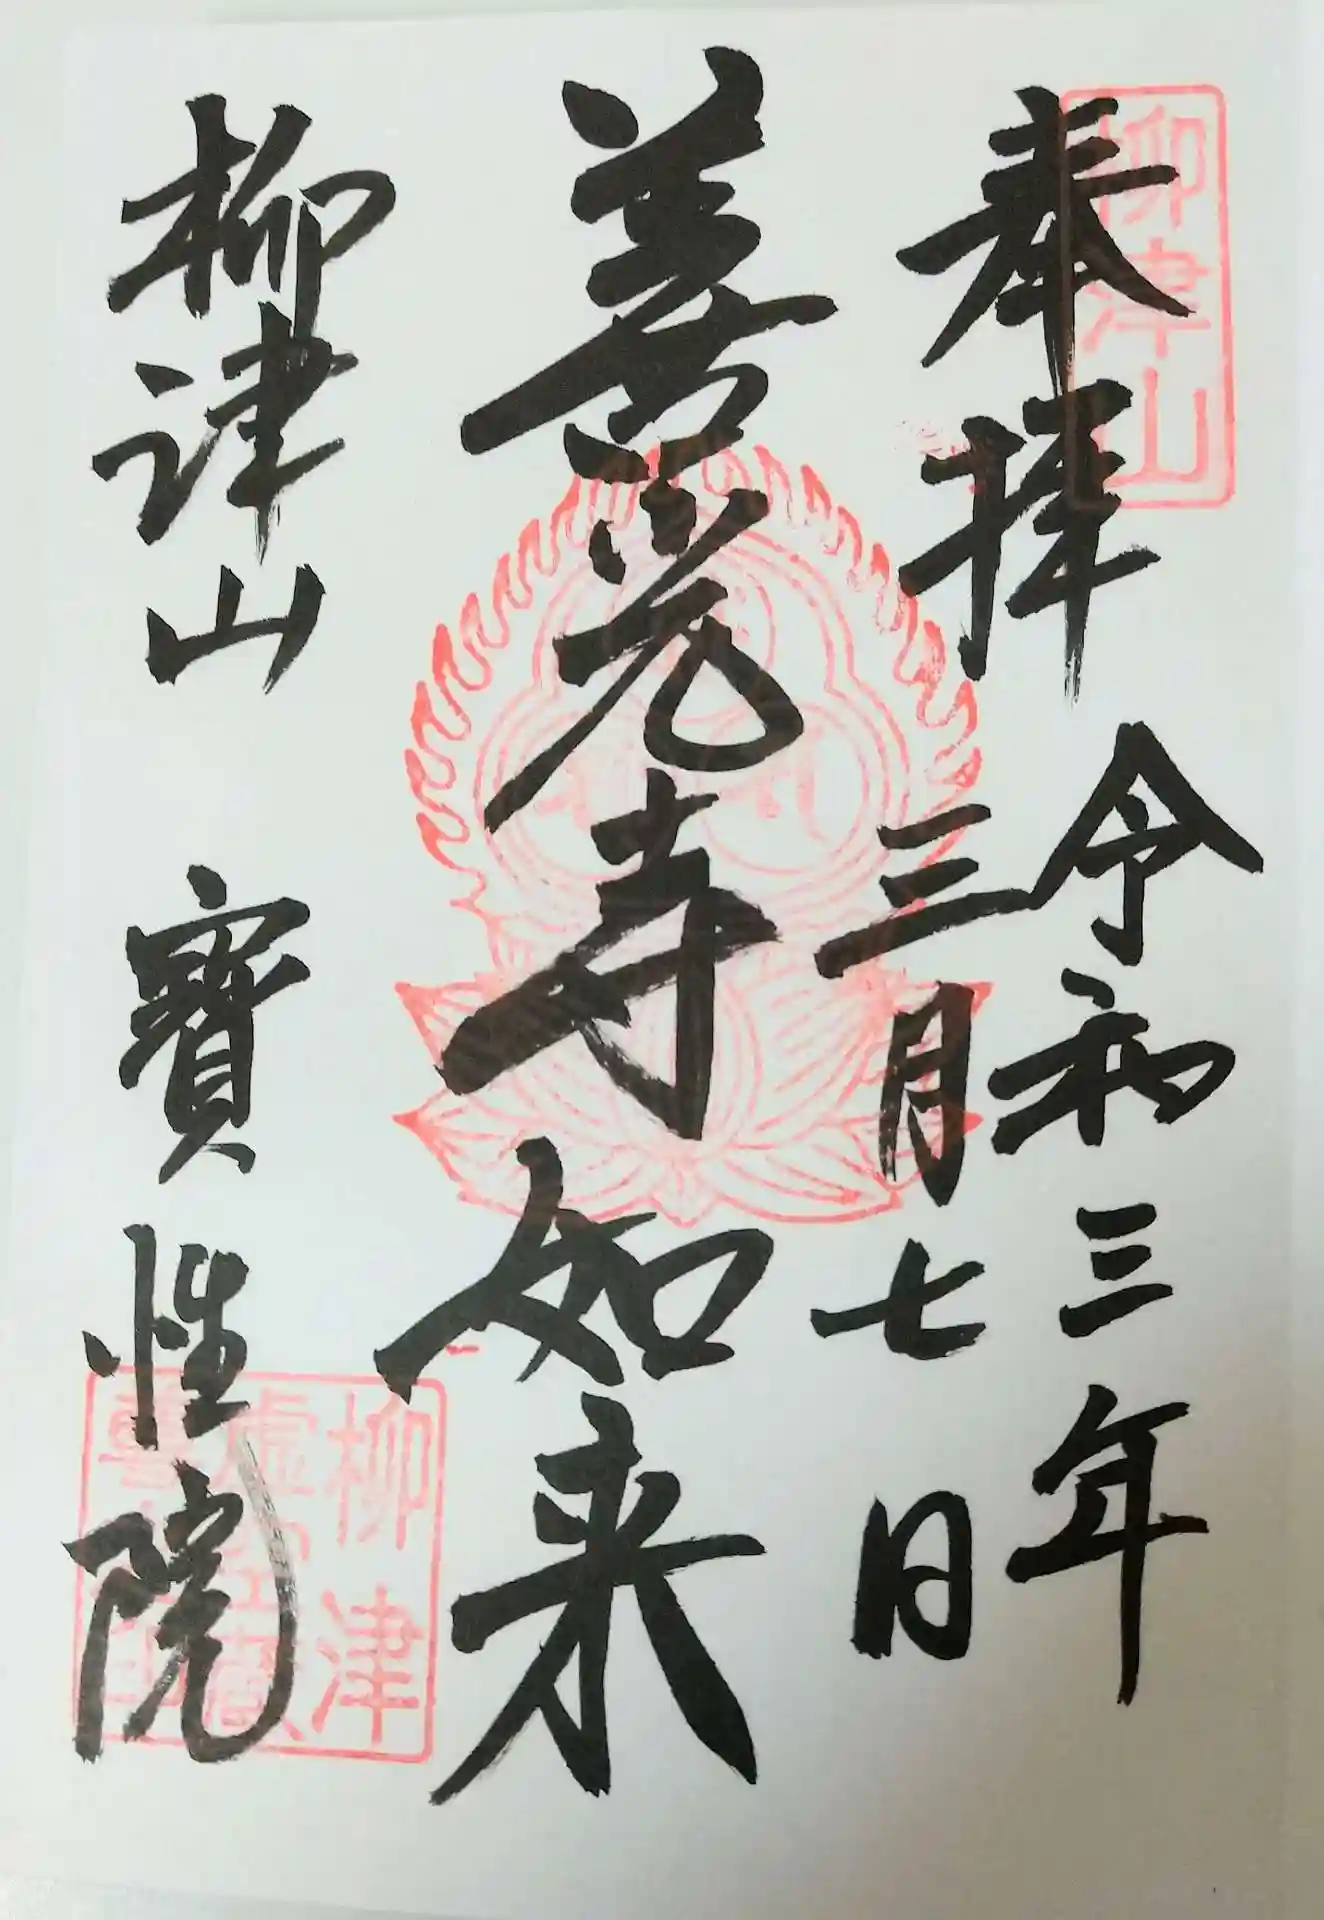 柳津山
奉拝
令和三年
三月七日
善光寺如来
柳津山 寳性院
柳津
虚空蔵